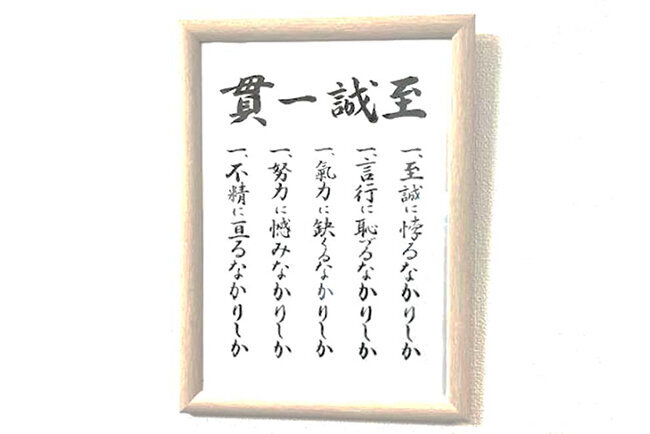 至誠一貫
一、至誠に悖るなかりしか
一、言行に恥づるなかりしか
一、氣力に缺くるなかりしか
一、努力に憾みなかりしか
一、不精に亘るなかりしか